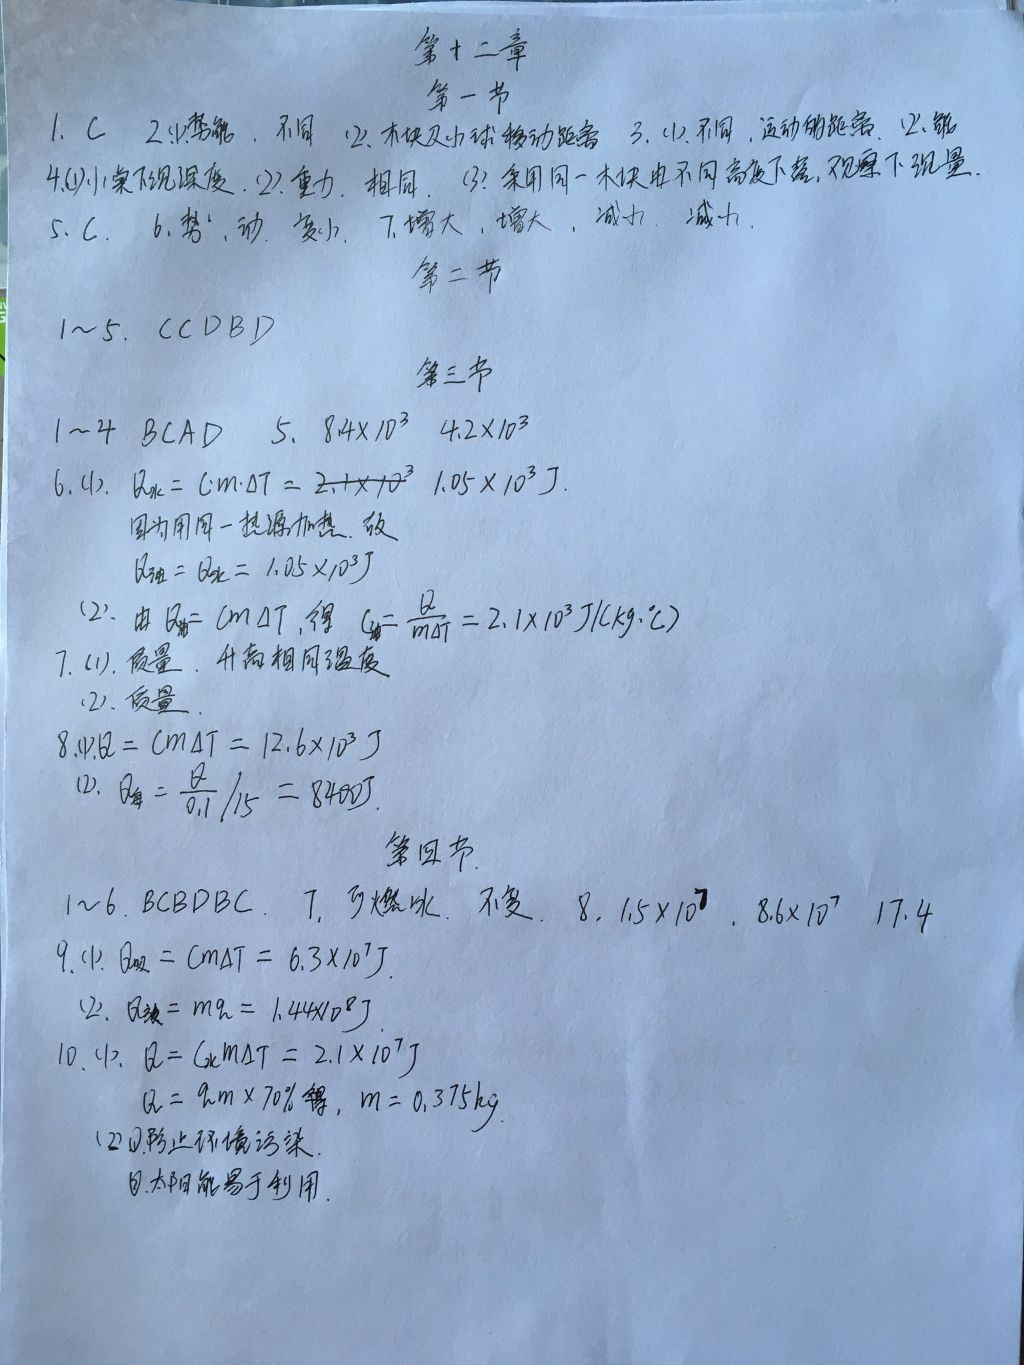 第十二章
第一节
1. C 2.(1).势能、不同 (2).木块及小球移动距离 3.(1).不同、运动的距离.(2).能
4.(1)小桌下沉深度.(2).重力、相同.(3).采用同一木块由不同高度下落,观察下沉量.
5. C. 6.势、动、变小. 7.增大、增大、减小、减小.
第二节
1~5. CCDBD
第三节
1~4 BCAD 5. 8.4×10³ 4.2×10³
6.(1). Q水 = C·m·ΔT = 1.05×10³J.
因为用同一热源加热.故
Q油 = Q水 = 1.05×10³J
(2).由Q油 = CmΔT,得 C油 = Q/mΔT = 2.1×10³J/(kg·℃)
7.(1).质量、升高相同温度
(2).质量.
8.(1)Q = CmΔT = 12.6×10³J
(2). = Q/0.1/15 = 8400J.
第四节.
1~6. BCBDBC. 7.可燃冰.不变. 8. 1.5×10⁷.8.6×10⁷ 17.4
9.(1). Q吸 = CmΔT = 6.3×10⁷J.
(2). = mq = 1.44×10⁸J.
10.(1). Q = C水mΔT = 2.1×10⁷J
Q = qm×70%得, m = 0.375kg.
(2)①.防止环境污染.
②.太阳能易于利用.